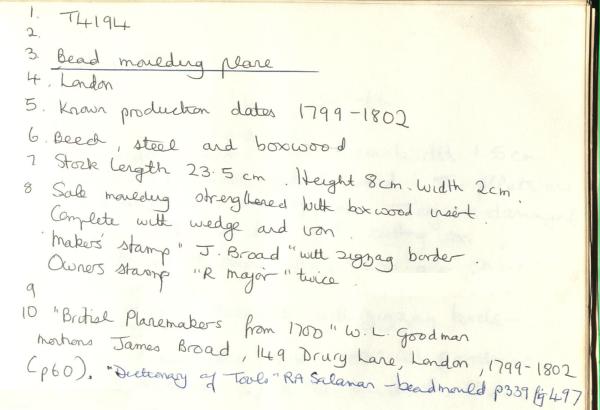 1. T4194
2.
3. Bead moulding plane
4. London
5. Known production dates 1799-1802
6. Beech, steel and boxwood
7 Stock length 23.5cm. Height 8cm. Width 2cm.
8 Sole moulding strengthened with boxwood insert.
Complete with wedge and iron.
Makers' stamp "J. Broad" with zigzag border.
Owners stamp "R Major" twice.
9
10 "British Planemakers from 1700" W.L Goodman
mentions James Broad, 149 Drury Lane, London, 1799-1802
(p60). "Dictionary of Tools" RA Salaman - bead mould p339 fig 497